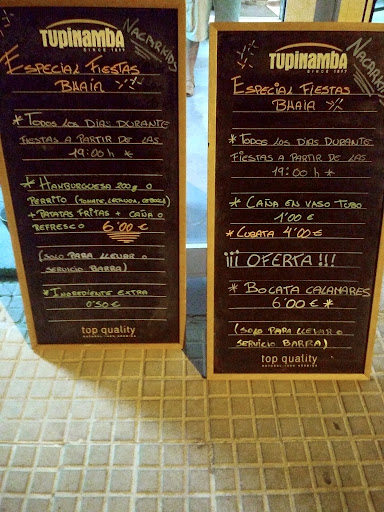 TUPINAMBA
SINCE 1897
NACARKIDS
ESPECIAL FIESTAS
BHAIR
* TODOS LOS DÍAS DURANTE
FIESTAS A PARTIR DE LAS
19:00 h *
* HAMBURGUESA 200g O
PERRITO (TOMATE, LECHUGA, CEBOLLA)
+ PATATAS FRITAS + CAÑA O
REFRESCO 6'00 €
(SOLO PARA LLEVAR O
SERVICIO BARRA)
* INGREDIENTE EXTRA
0'50 €
top quality
NATURAL 100% ARABICA
TUPINAMBA
SINCE 1897
NACARKIDS
ESPECIAL FIESTAS
BHAIR
* TODOS LOS DÍAS DURANTE
FIESTAS A PARTIR DE LAS
19:00 h *
* CAÑA EN VASO TUBO
1'00 €
* CUBATA 4'00 €
¡¡¡ OFERTA !!!
* BOCATA CALAMARES
6'00 € *
(SOLO PARA LLEVAR O
SERVICIO BARRA)
top quality
NATURAL 100% ARABICA